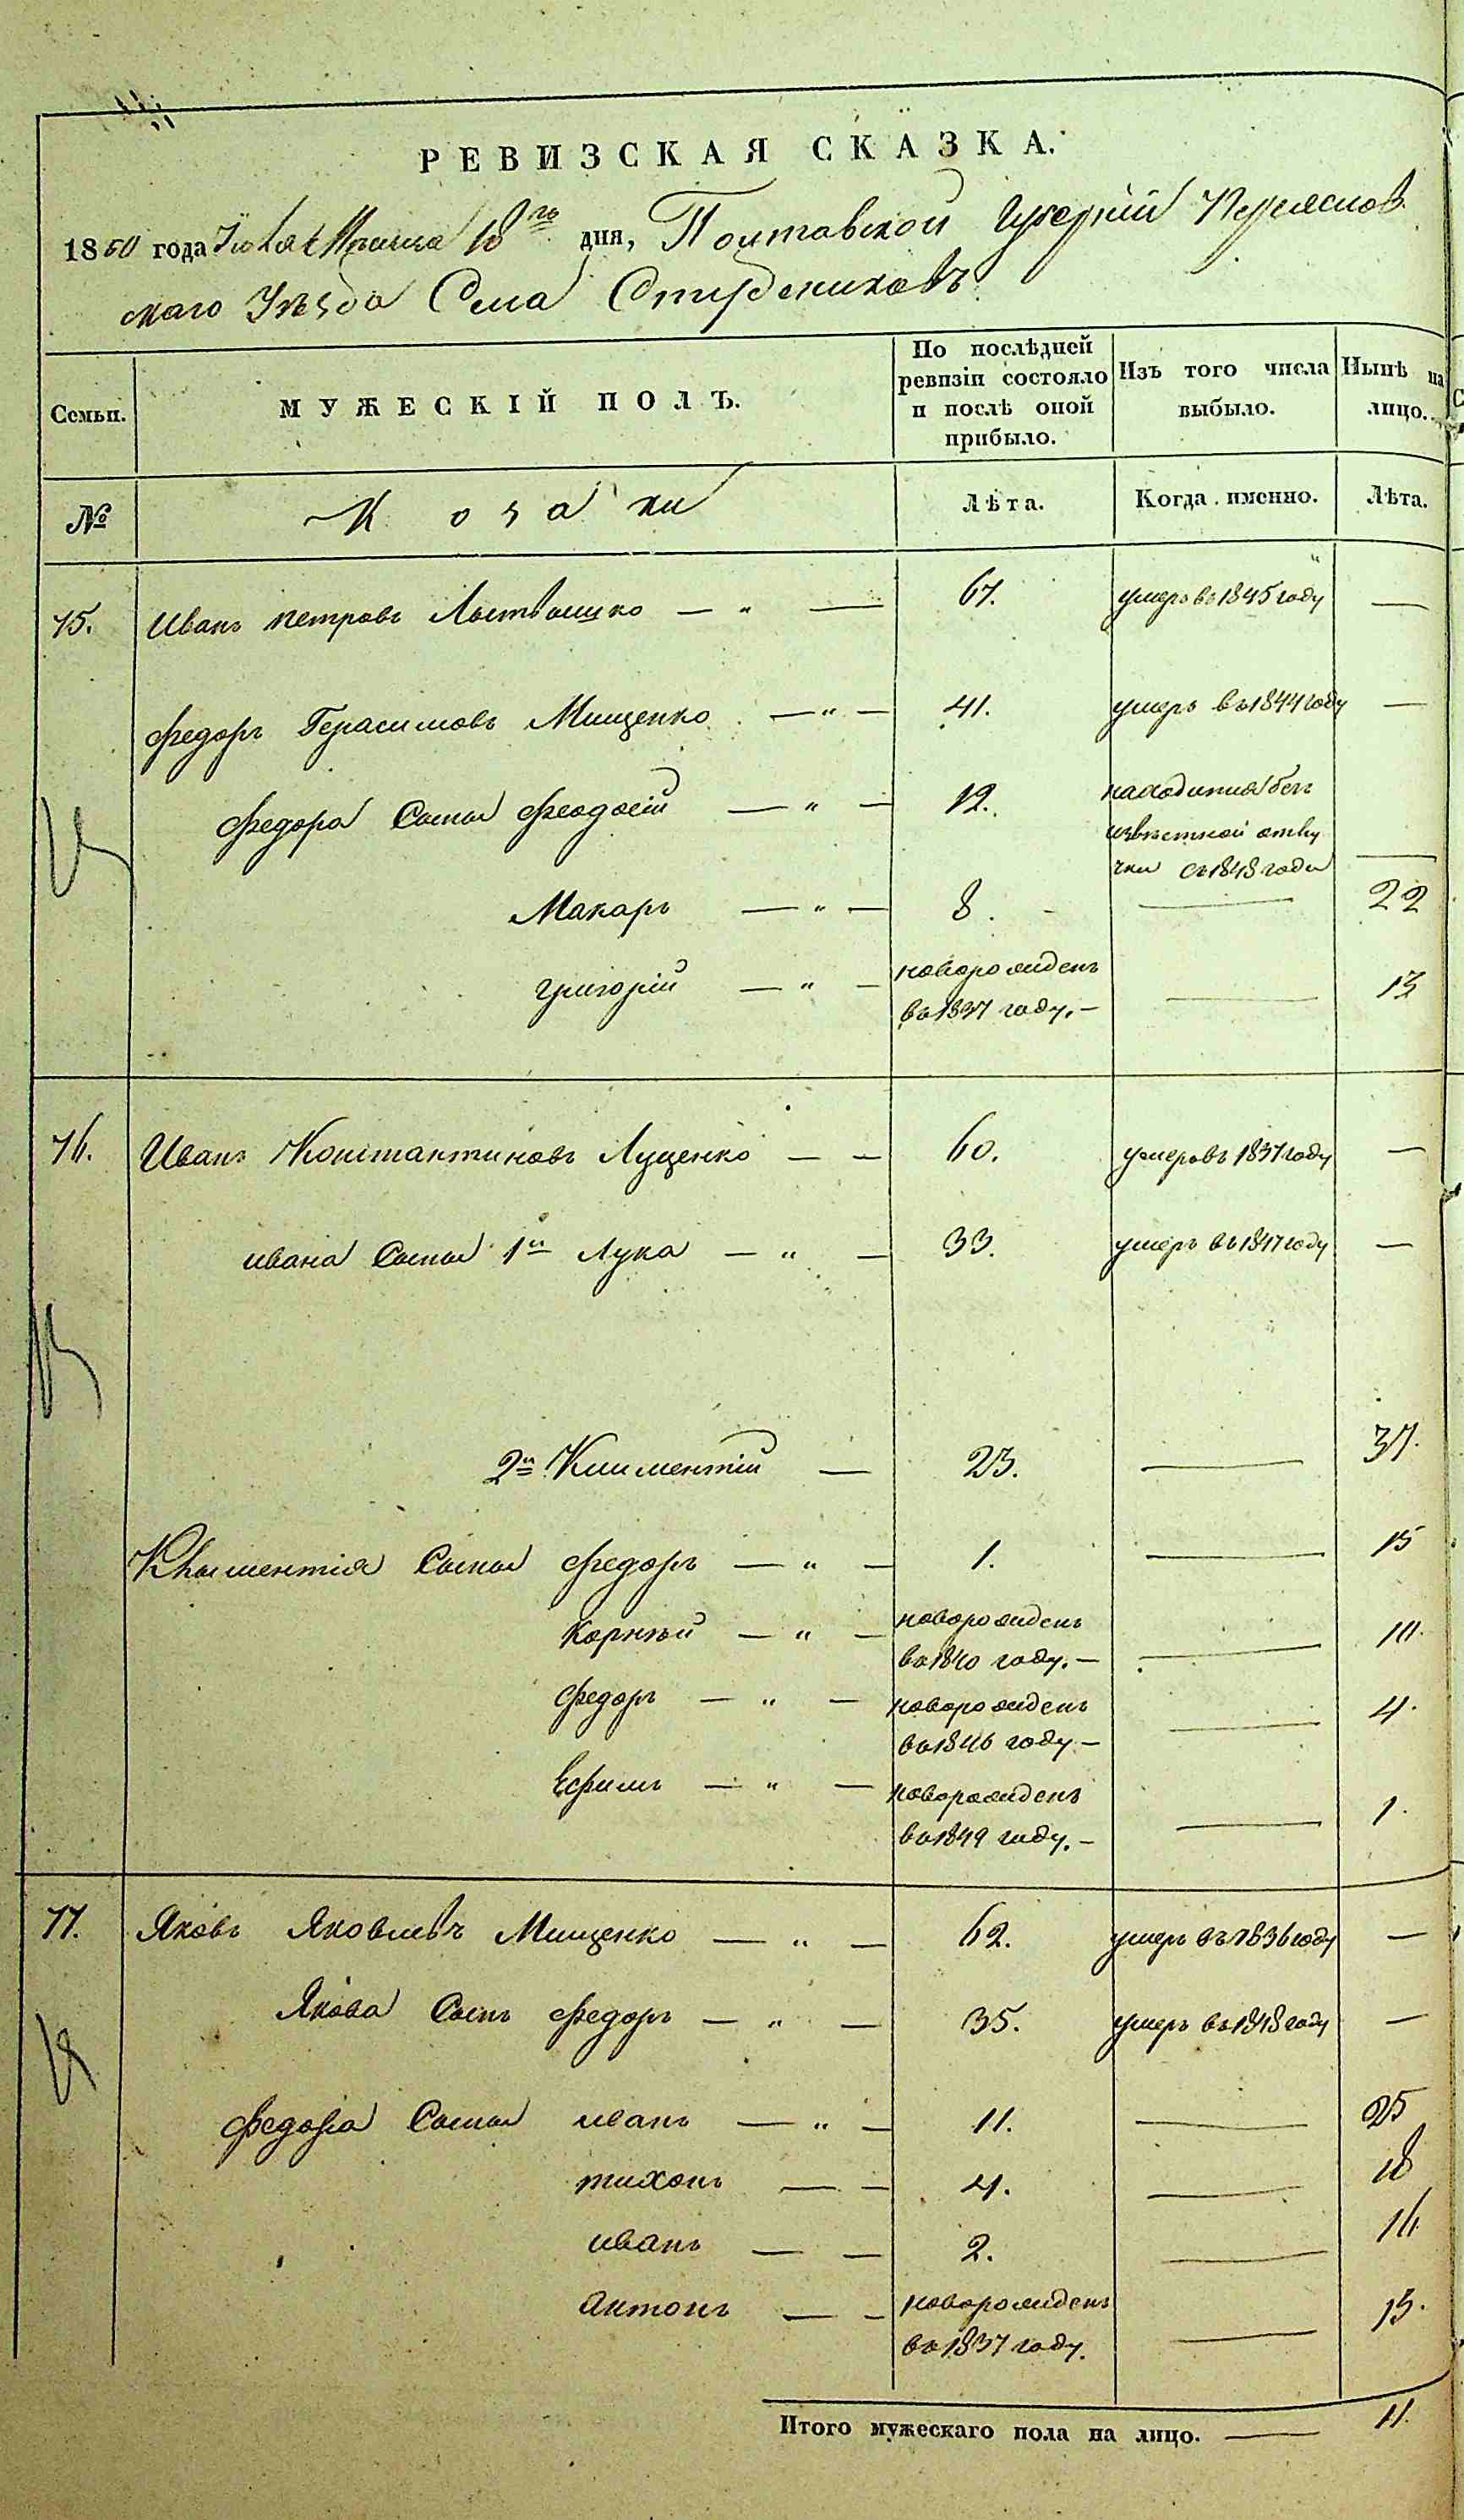 РЕВИЗСКАЯ СКАЗКА.
1850 года 18го дня, Полтавской Губерніи Переяслов
скаго Уѣзда Села Студениковъ
Семьи. МУЖЕСКІЙ ПОЛЪ. По послѣдней ревизіи состояло и послѣ оной прибыло. Изъ того числа выбыло. Нынѣ на лицо.
№ Козаки Лѣта. Когда именно. Лѣта.
75. Иванъ Петровъ — " — 67. умеръ въ 1845 году —
Федоръ Герасимовъ Мищенко — " — 41. умеръ въ 1844 году —
Федора Сыны Феодосій — " — 12. находится безъ
извѣстной отлу
чки съ 1848 года —
Макаръ — " — 8. — 22
Григорій — " — новорожденъ
въ 1837 году. — — 13
76. Иванъ Константиновъ Луценко — — 60. умеръ въ 1837 году —
Ивана Сыны 1й Лука — " — 33. умеръ въ 1847 году —
2й Климентій — 23. — 37.
Климентія Сыны Федоръ — " — 1. — 15
Корнѣй — " — новорожденъ
въ 1840 году. — — 10.
Федоръ — " — новорожденъ
въ 1846 году — — 4.
Ефимъ — " — новорожденъ
въ 1849 году. — — 1.
77. Яковъ Яковлевъ Мищенко — " — 62. умеръ въ 1836 году —
Якова Сынъ Федоръ — " — 35. умеръ въ 1848 году —
Федора Сыны Иванъ — " — 11. — 25
Тихонъ — — 4. — 18
Иванъ — — 2. — 16.
Антонъ — — новорожденъ
въ 1837 году. — 13.
Итого мужескаго пола на лицо. — 11.